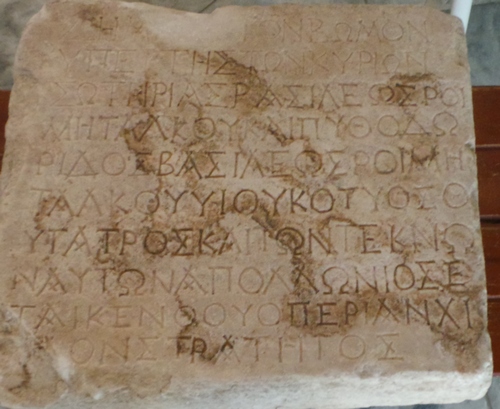 ΒΩΜΟΝ
ΥΠΕΡΤΗΣΤΩΝΚΥΡΙΩΝ
ΣΩΤΗΡΙΑΣΒΑΣΙΛΕΩΣΡΟΙ
ΜΗΤΑΛΚΟΥΚΑΙΠΥΘΟΔΩ
ΡΙΔΟΣΒΑΣΙΛΕΩΣΡΟΙΜΗ
ΤΑΛΚΟΥΥΙΟΥΚΟΤΥΟΣΘ
ΥΓΑΤΡΟΣΚΑΙΤΩΝΤΕΚΝΩ
ΝΑΥΤΩΝΑΠΟΛΛΩΝΙΟΣΕ
ΤΑΙΚΕΝΘΟΥΟΠΕΡΙΑΝΧΙ
ΟΝΣΤΡΑΤΗΓΟΣ